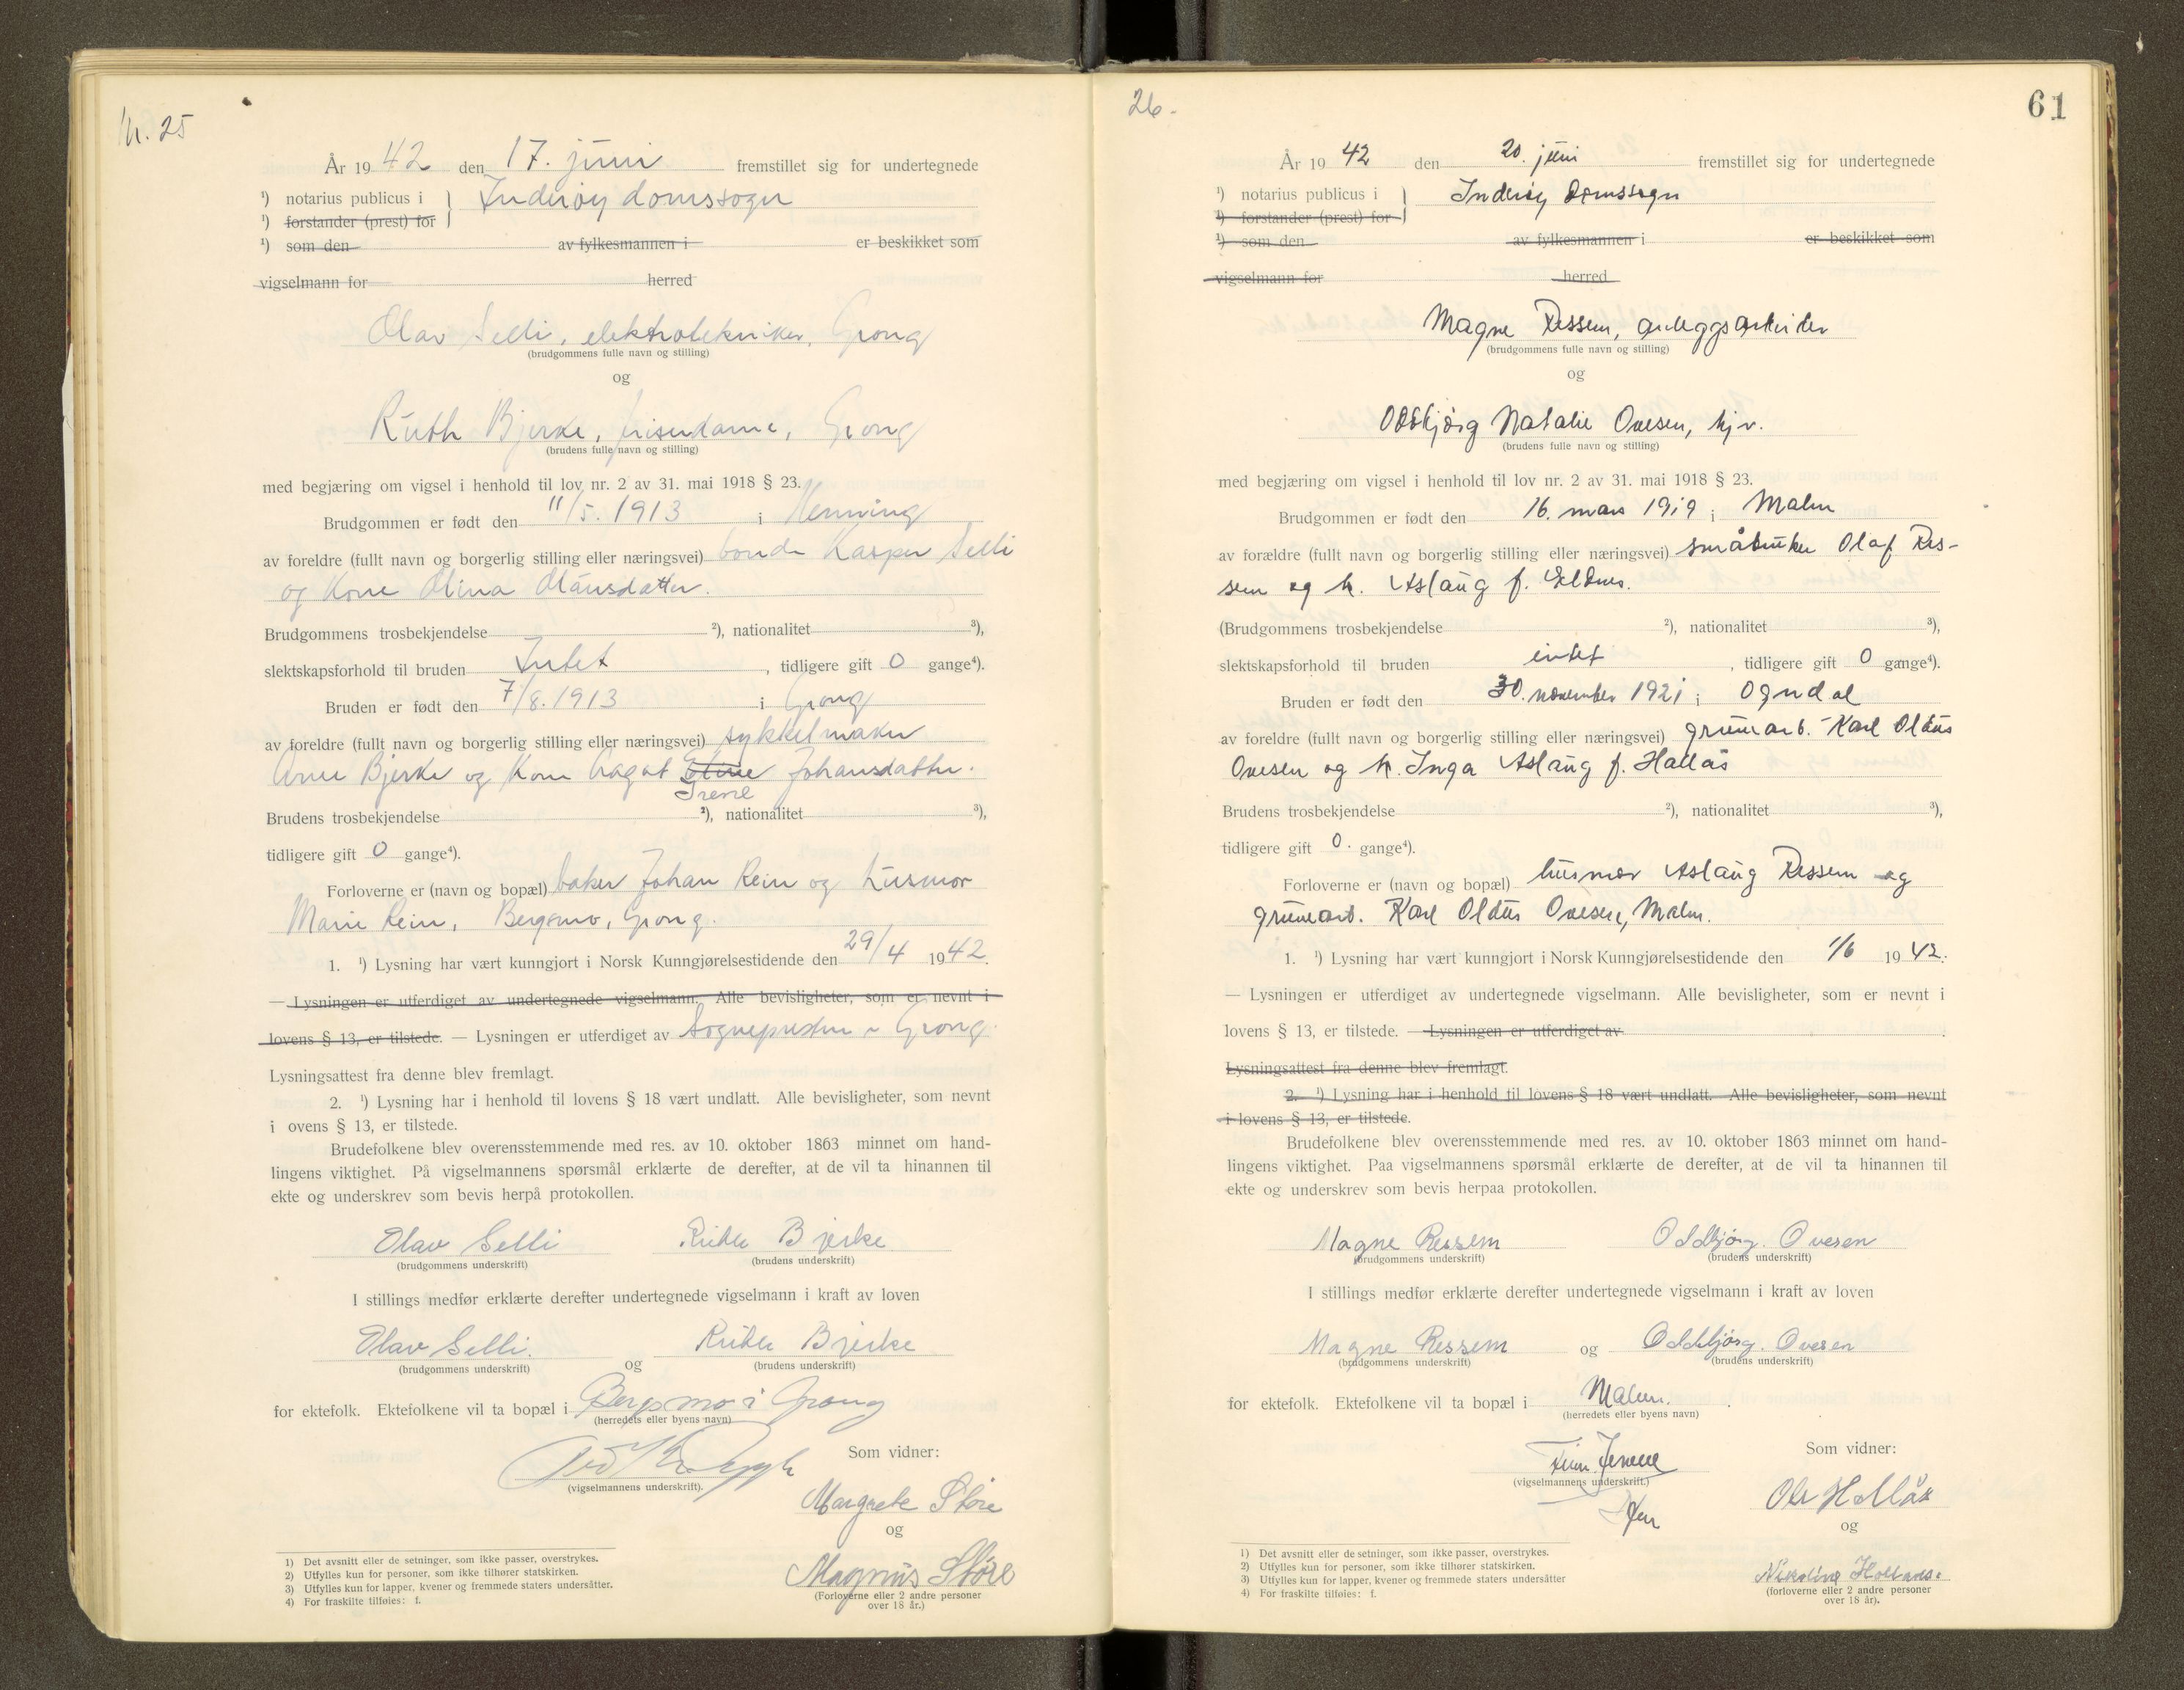 Nr. 25
År 1942 den 17. juni fremstillet sig for undertegnede
¹) notarius publicus i } Inderøy domssogn
¹) forstander (prest) for
¹) som den av fylkesmannen i er beskikket som
vigselmann for herred
Olav Selli, elektrotekniker, Grong
(brudgommens fulle navn og stilling)
og
Ruth Bjerke, frisердame, Grong
(brudens fulle navn og stilling)
med begjæring om vigsel i henhold til lov nr. 2 av 31. mai 1918 § 23.
Brudgommen er født den 11/5. 1913 i Henning
av foreldre (fullt navn og borgerlig stilling eller næringsvei) bonde Kasper Selli
og Kone Olina Olausdatter.
Brudgommens trosbekjendelse ²), nationalitet ³),
slektskapsforhold til bruden Intet, tidligere gift 0 gange⁴).
Bruden er født den 7/8. 1913 i Grong
av foreldre (fullt navn og borgerlig stilling eller næringsvei) sykkelmaker
Arne Bjerke og Kone Aagot Johansdatter.
Irene
Brudens trosbekjendelse ²), nationalitet ³),
tidligere gift 0 gange⁴).
Forloverne er (navn og bopæl) baker Johan Rein og husmor
Marie Rein, Bergsmo, Grong.
1. ¹) Lysning har vært kunngjort i Norsk Kunngjørelsestidende den 29/4 1942.
— Lysningen er utferdiget av undertegnede vigselmann. Alle bevisligheter, som er nevnt i
lovens § 13, er tilstede. — Lysningen er utferdiget av Sognepresten i Grong.
Lysningsattest fra denne blev fremlagt.
2. ¹) Lysning har i henhold til lovens § 18 vært undlatt. Alle bevisligheter, som nevnt
i ovens § 13, er tilstede.
Brudefolkene blev overensstemmende med res. av 10. oktober 1863 minnet om hand-
lingens viktighet. På vigselmannens spørsmål erklærte de derefter, at de vil ta hinannen til
ekte og underskrev som bevis herpå protokollen.
Olav Selli Ruth Bjerke
(brudgommens underskrift) (brudens underskrift)
I stillings medfør erklærte derefter undertegnede vigselmann i kraft av loven
Olav Selli. og Ruth Bjerke
(brudgommens underskrift) (brudens underskrift)
for ektefolk. Ektefolkene vil ta bopæl i Bergsmo i Grong
(herredets eller byens navn)
Som vidner:
(vigselmannens underskrift).
Margrete Støre
og
Magnus Støre
(Forloverne eller 2 andre personer
over 18 år.)
1) Det avsnitt eller de setninger, som ikke passer, overstrykes.
2) Utfylles kun for personer, som ikke tilhører statskirken.
3) Utfylles kun for lapper, kvener og fremmede staters undersåtter.
4) For fraskilte tilføies: f.
26.
61
År 1942 den 20. juni fremstillet sig for undertegnede
¹) notarius publicus i } Inderøy Domssogn
¹) forstander (prest) for
¹) som den av fylkesmannen i er beskikket som
vigselmann for herred
Magne Ressem, anleggsarbeider
(brudgommens fulle navn og stilling)
og
Oddbjørg Natalie Ovesen, hjv.
(brudens fulle navn og stilling)
med begjæring om vigsel i henhold til lov nr. 2 av 31. mai 1918 § 23.
Brudgommen er født den 16. mars 1919 i Malm
av forældre (fullt navn og borgerlig stilling eller næringsvei) småbruker Olaf Res-
sem og h. Aslaug f. Eldnes.
(Brudgommens trosbekjendelse ²), nationalitet ³),
slektskapsforhold til bruden intet, tidligere gift 0 gange⁴).
Bruden er født den 30. november 1921 i Ogndal
av foreldre (fullt navn og borgerlig stilling eller næringsvei) gruvearb. Karl Oldus
Ovesen og h. Inga Aslaug f. Hallås
Brudens trosbekjendelse ²), nationalitet ³),
tidligere gift 0. gange⁴).
Forloverne er (navn og bopæl) husmor Aslaug Ressem og
gruvearb. Karl Oldus Ovesen, Malm.
1. ¹) Lysning har vært kunngjort i Norsk Kunngjørelsestidende den 1/6 1942.
— Lysningen er utferdiget av undertegnede vigselmann. Alle bevisligheter, som er nevnt i
lovens § 13, er tilstede. — Lysningen er utferdiget av
Lysningsattest fra denne blev fremlagt.
2. ¹) Lysning har i henhold til lovens § 18 vært undlatt. Alle bevisligheter, som nevnt
i lovens § 13, er tilstede.
Brudefolkene blev overensstemmende med res. av 10. oktober 1863 minnet om hand-
lingens viktighet. Paa vigselmannens spørsmål erklærte de derefter, at de vil ta hinannen til
ekte og underskrev som bevis herpaa protokollen.
Magne Ressem Oddbjørg. Ovesen
(brudgommens underskrift) (brudens underskrift)
I stillings medfør erklærte derefter undertegnede vigselmann i kraft av loven
Magne Ressem og Oddbjørg. Ovesen
(brudgommens underskrift) (brudens underskrift)
for ektefolk. Ektefolkene vil ta bopæl i Malm.
(herredets eller byens navn)
Som vidner:
(vigselmannens underskrift.)
og
(forloverne eller 2 andre personer
over 18 år).
1) Det avsnitt eller de setninger, som ikke passer, overstrykes.
2) Utfylles kun for personer, som ikke tilhører statskirken.
3) Utfylles kun for lapper, kvener og fremmede staters undersåtter
4) For fraskilte tilføies: f.